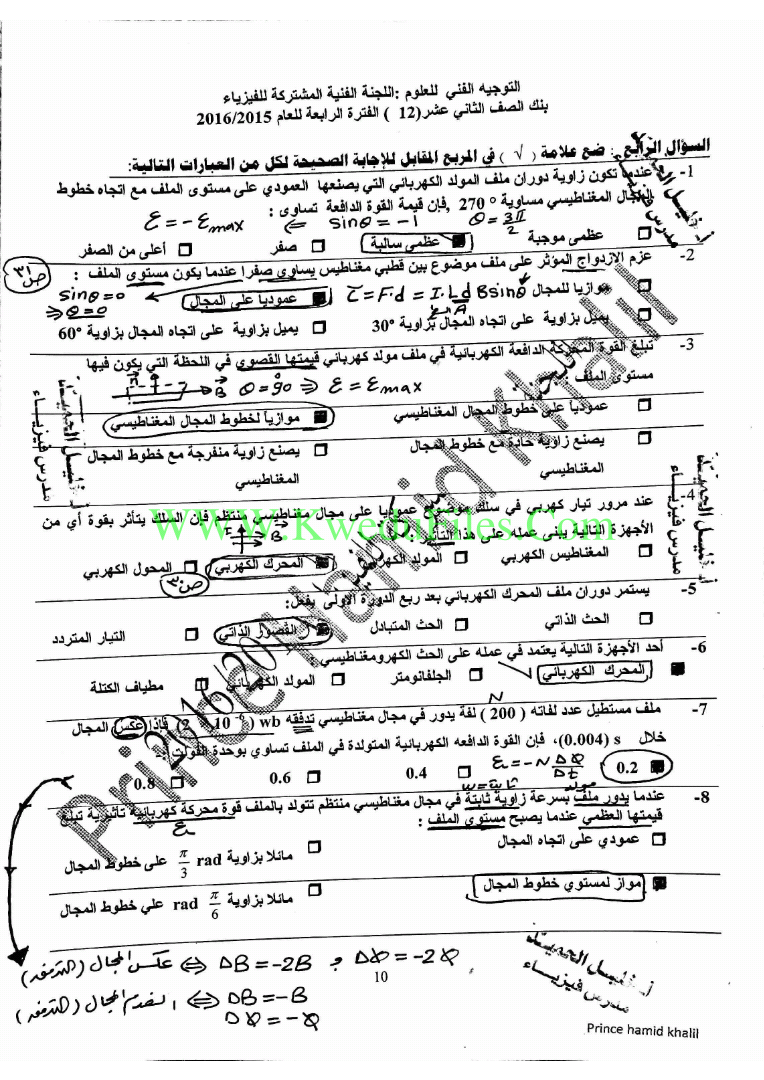 التوجيه الفني للعلوم :اللجنة الفنية المشتركة للفيزياء
بنك الصف الثاني عشر(12 ) الفترة الرابعة للعام 2016/2015
السؤال الرابع : ضع علامة ( √ ) في المربع المقابل للإجابة الصحيحة لكل من العبارات التالية:
1- عندما تكون زاوية دوران ملف المولد الكهربائي التي يصنعها العمودي على مستوى الملف مع اتجاه خطوط
المجال المغناطيسي مساوية 270 ° ,فإن قيمة القوة الدافعة تساوى :
ε = - εmax ⇐ sinθ = -1 θ = 3π/2
عظمى موجبة عظمى سالبة صفر أعلى من الصفر
2- عزم الازدواج المؤثر على ملف موضوع بين قطبي مغناطيس يساوي صفرا عندما يكون مستوى الملف :
ص٣١
موازيا للمجال τ = F.d = I.Ld B sinθ عموديا على المجال sinθ=0
⇒ θ=0
A
يميل بزاوية على اتجاه المجال بزاوية 30° يميل بزاوية على اتجاه المجال بزاوية 60°
3- تبلغ القوة المحركة الدافعة الكهربائية في ملف مولد كهربائي قيمتها القصوي في اللحظة التي يكون فيها
مستوى الملف B θ = 90 ⇒ ε = εmax
عموديا على خطوط المجال المغناطيسي موازياً لخطوط المجال المغناطيسي
يصنع زاوية حادة مع خطوط المجال يصنع زاوية منفرجة مع خطوط المجال
المغناطيسي المغناطيسي
4- عند مرور تيار كهربي في سلك موضوع عموديا على مجال مغناطيسي منتظم فإن السلك يتأثر بقوة أي من
الأجهزة التالية يبنى عمله على هذا التأثير I B
المغناطيس الكهربي المولد الكهربي المحرك الكهربي المحول الكهربي
ص٣٠
5- يستمر دوران ملف المحرك الكهربائي بعد ربع الدورة الاولى بفعل:
الحث الذاتي الحث المتبادل القصور الذاتي التيار المتردد
6- أحد الأجهزة التالية يعتمد في عمله على الحث الكهرومغناطيسي :
المحرك الكهربائي الجلفانومتر المولد الكهربائي مطياف الكتلة
N
7- ملف مستطيل عدد لفاته ( 200 ) لفة يدور في مجال مغناطيسي تدفقه wb ( 10 ) فإذا عكس المجال
خلال s (0.004)، فإن القوة الدافعه الكهربائية المتولدة في الملف تساوي بوحدة الفولت :-
0.2 ε = -N ΔΦ/Δt 0.4 0.6 0.8
مولد w = ثابتة
8- عندما يدور ملف بسرعة زاوية ثابتة في مجال مغناطيسي منتظم تتولد بالملف قوة محركة كهربائية تأثيرية تبلغ
قيمتها العظمي عندما يصبح مستوي الملف :
ε
عمودي على اتجاه المجال مائلا بزاوية π/3 rad على خطوط المجال
مواز لمستوي خطوط المجال مائلا بزاوية π/6 rad علي خطوط المجال
عكس المجال (التدفق) ⇔ ΔB = -2B و ΔΦ = -2Φ
انعدم المجال (التدفق) ⇔ ΔB = -B
ΔΦ = -Φ
10
Prince hamid khalil
مدرس فيزياء
Prince Hamid Khalil
WWW.KweduFiles.Com